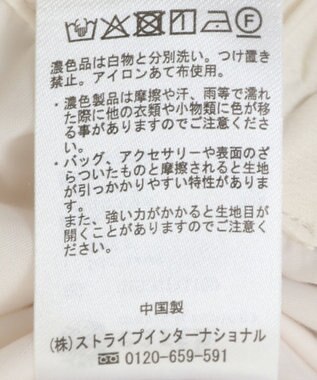 濃色品は白物と分別洗い。つけ置き
禁止。アイロンあて布使用。
・濃色製品は摩擦や汗、雨等で濡れ
た際に他の衣類や小物類に色が移
る事がありますのでご注意くださ
い。
・バッグ、アクセサリーや表面のざ
らついたものと摩擦されると生地
が引っかかりやすい特性がありま
す。
また、強い力がかかると生地目が
開くことがありますのでご注意く
ださい。
中国製
(株)ストライプインターナショナル
0120-659-591